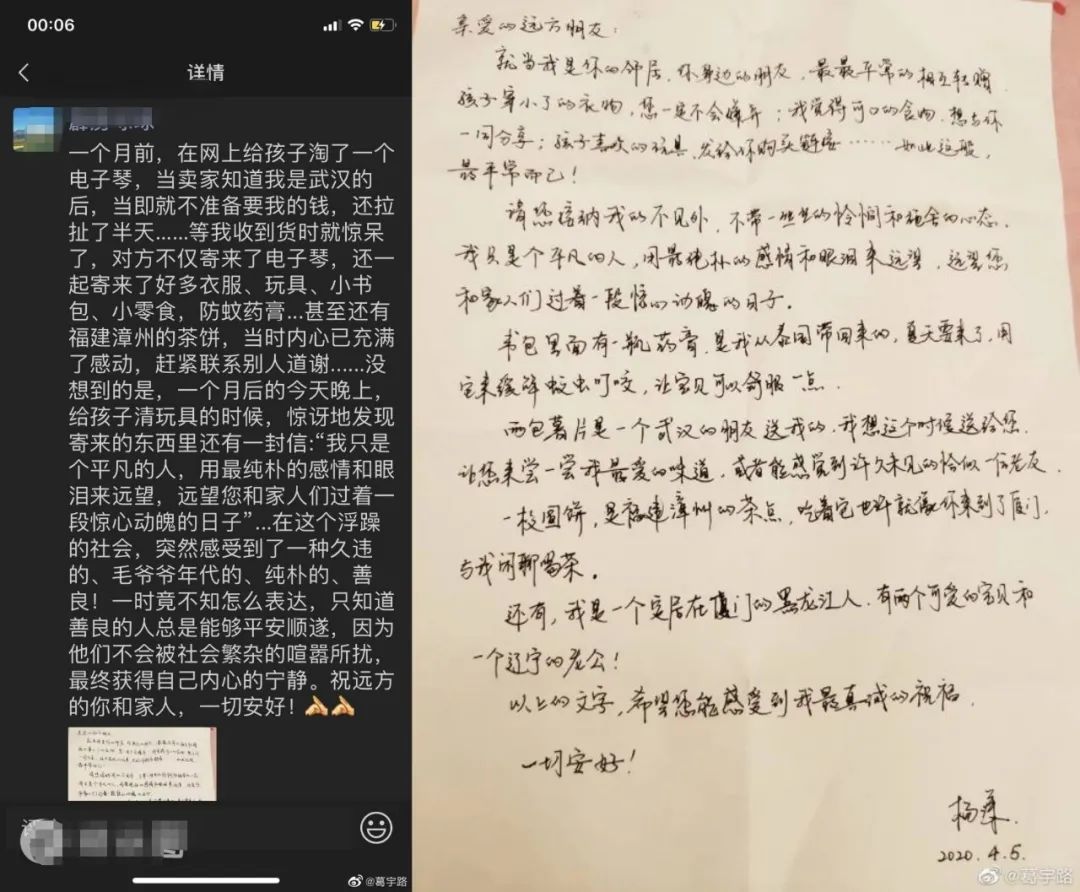 00:06
详情
一个月前，在网上给孩子淘了一个
电子琴，当卖家知道我是武汉的
后，当即就不准备要我的钱，还拉
扯了半天......等我收到货时就惊呆
了，对方不仅寄来了电子琴，还一
起寄来了好多衣服、玩具、小书
包、小零食，防蚊药膏...甚至还有
福建漳州的茶饼，当时内心已充满
了感动，赶紧联系别人道谢......没
想到的是，一个月后的今天晚上，
给孩子清玩具的时候，惊讶地发现
寄来的东西里还有一封信:“我只是
个平凡的人，用最纯朴的感情和眼
泪来远望，远望您和家人们过着一
段惊心动魄的日子”...在这个浮躁
的社会，突然感受到了一种久违
的、毛爷爷年代的、纯朴的、善
良！一时竟不知怎么表达，只知道
善良的人总是能够平安顺遂，因为
他们不会被社会繁杂的喧嚣所扰，
最终获得自己内心的宁静。祝远方
的你和家人，一切安好！
@葛宇路
亲爱的远方朋友：
就当我是你的邻居，你身边的朋友，最最平常的相互转赠
孩子穿小了的衣物，您一定不会嫌弃；我觉得可口的食物，想与你
一同分享；孩子喜欢的玩具，发给你购买链接……如此这般，
最平常而已！
请您接纳我的不见外，不带一些些的怜悯和施舍的心态。
我只是个平凡的人，用最纯朴的感情和眼泪来远望，远望您
和家人们过着一段惊心动魄的日子。
书包里面有一瓶药膏，是我从泰国带回来的，夏天要来了，用
它来缓解蚊虫叮咬，让宝贝可以舒服一点．
两包薯片是一个武汉的朋友送我的，我想这个时候送给您，
让您来尝一尝我最爱的味道，或者能感觉到许久未见的恰似一位老友．
一枚圆饼，是福建漳州的茶点，吃着它也许就像你来到了厦门，
与我闲聊喝茶。
还有，我是一个定居在厦门的黑龙江人，有两个可爱的宝贝和
一个辽宁的老公！
以上的文字，希望您能感受到我最真诚的祝福．
一切安好！
杨
2020.4.5.
@葛宇路